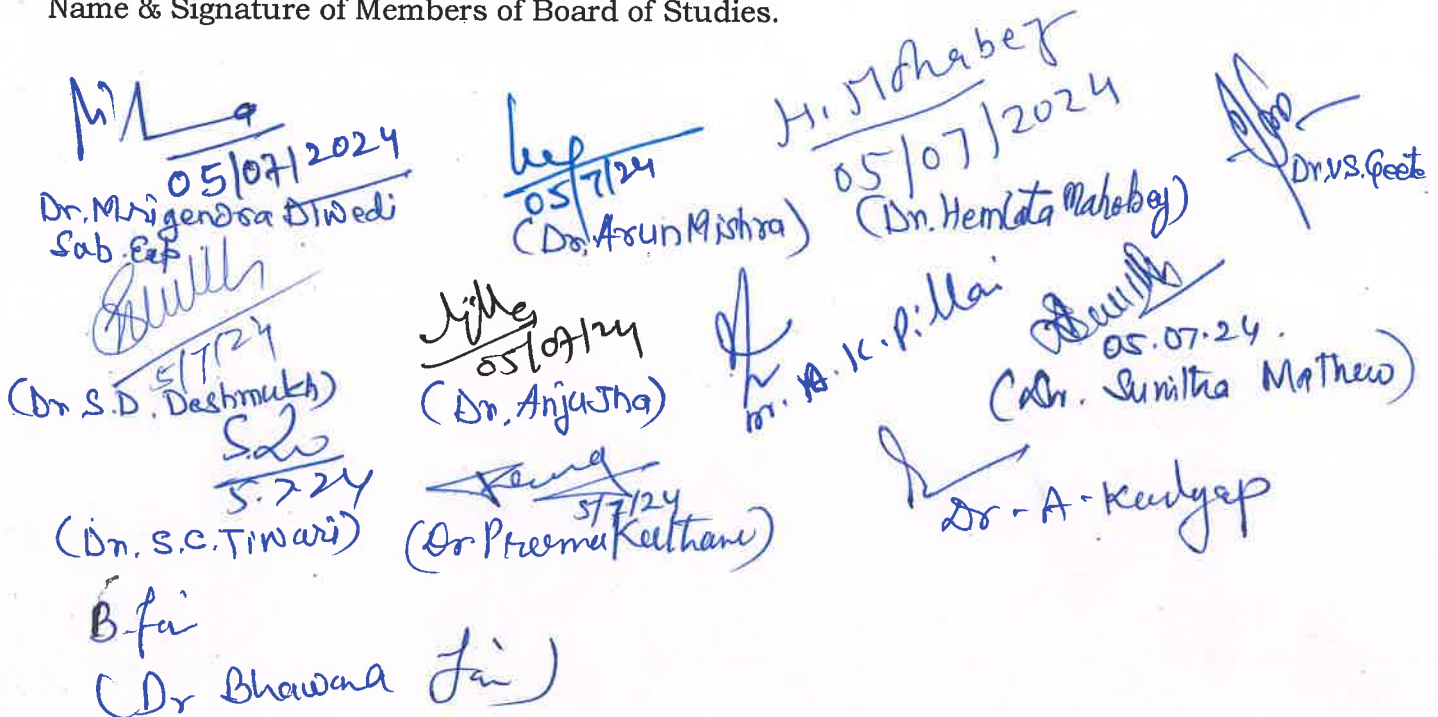 Name & Signature of Members of Board of Studies.
05/07/2024
Dr. Mrigendra Diwedi
Sab. Exp
05/7/24
(Dr. Arun Mishra)
H. Mohabey
05/07/2024
(Dr. Hemlata Mahobey)
Dr. V.S. Geete
5/7/24
(Dr S.D. Deshmukh)
05/07/24
(Dr. Anju Jha)
Dr. A. K. Pillai
05.07.24.
(Dr. Sunitha Mathew)
5.7.24
(Dr. S.C. Tiwari)
5/7/24
(Dr Prerna Kathane)
Dr. A. Kashyap
B. Jai
(Dr Bhawana Jain)